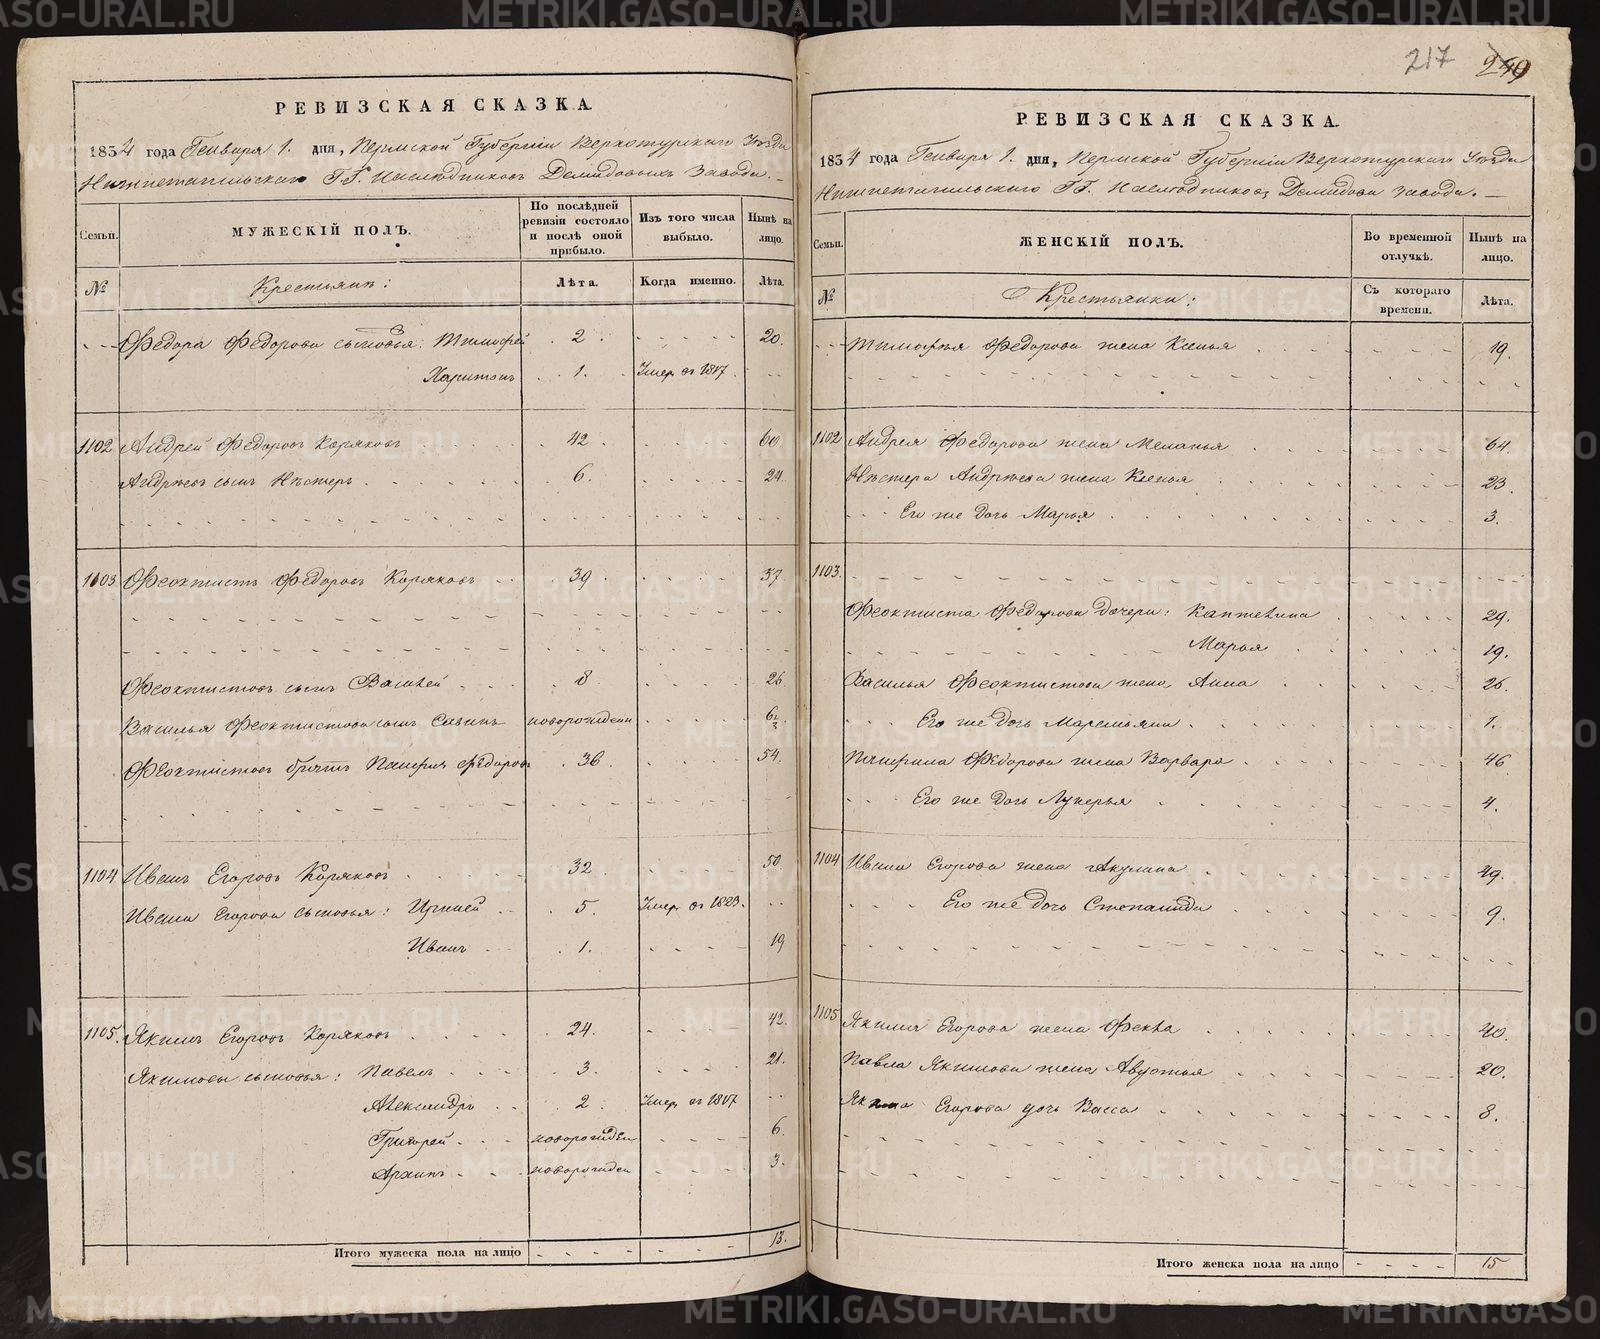 217 249
РЕВИЗСКАЯ СКАЗКА.
1834 года Генваря 1. дня, Пермской Губерніи Верхотурскаго Уѣзда
Нижнетагильскаго Г.Г. Наслѣдниковъ Демидовыхъ Завода.
Семьи.
МУЖЕСКІЙ ПОЛЪ.
По послѣдней ревизіи состояло и послѣ оной прибыло.
Изъ того числа выбыло.
Нынѣ на лицо.
№ Крестьянъ: Лѣта. Когда именно. Лѣта.
Ѳедора Ѳедорова сыновья: Тимофей 2. 20.
Харитонъ 1. Умер. въ 1817
1102 Андрей Ѳедоровъ Коряковъ 42. 60
Андреевъ сынъ Нестеръ 6. 24.
1103 Ѳеоктистъ Ѳедоровъ Коряковъ 39. 57
Ѳеоктистовъ сынъ Василей 8 26
Василья Ѳеоктистова сынъ Савинъ новорожденъ
Ѳеоктистовъ братъ Панфилъ Ѳедоровъ 36. 54.
1104 Иванъ Егоровъ Коряковъ 32 50
Ивана Егорова сыновья: Ириней 5. Умер. въ 1823.
Иванъ 1. 19
1105. Якимъ Егоровъ Коряковъ 24. 42.
Якимовы сыновья: Павелъ 3. 21.
Александръ 2 Умер. въ 1817
Григорей новорожден 6.
Архипъ новорожден 3.
Итого мужеска пола на лицо 13.
РЕВИЗСКАЯ СКАЗКА.
1834 года Генваря 1. дня, Пермской Губерніи Верхотурскаго Уѣзда
Нижнетагильскаго Г.Г. Наслѣдниковъ Демидова завода.
Семьи.
ЖЕНСКІЙ ПОЛЪ.
Во временной отлучкѣ.
Нынѣ на лицо.
№ Крестьянки: Съ котораго времени. Лѣта.
Тимофея Ѳедорова жена Ксенья 19.
1102 Андрея Ѳедорова жена Меланья 64.
Нестера Андреева жена Ксенья 23.
Его же дочь Марья 3.
1103.
Ѳеоктиста Ѳедорова дочери: Каптелина 29.
Марья 19.
Василья Ѳеоктистова жена Анна 26.
Его же дочь Маремьяна 1.
Панфила Ѳедорова жена Варвара 46
Его же дочь Лукерья 4.
1104 Ивана Егорова жена Акулина 49.
Его же дочь Степанида 9.
1105 Якима Егорова жена Ѳекла 40.
Павла Якимова жена Авдотья 20.
Якима Егорова дочь Васса 8.
Итого женска пола на лицо 15